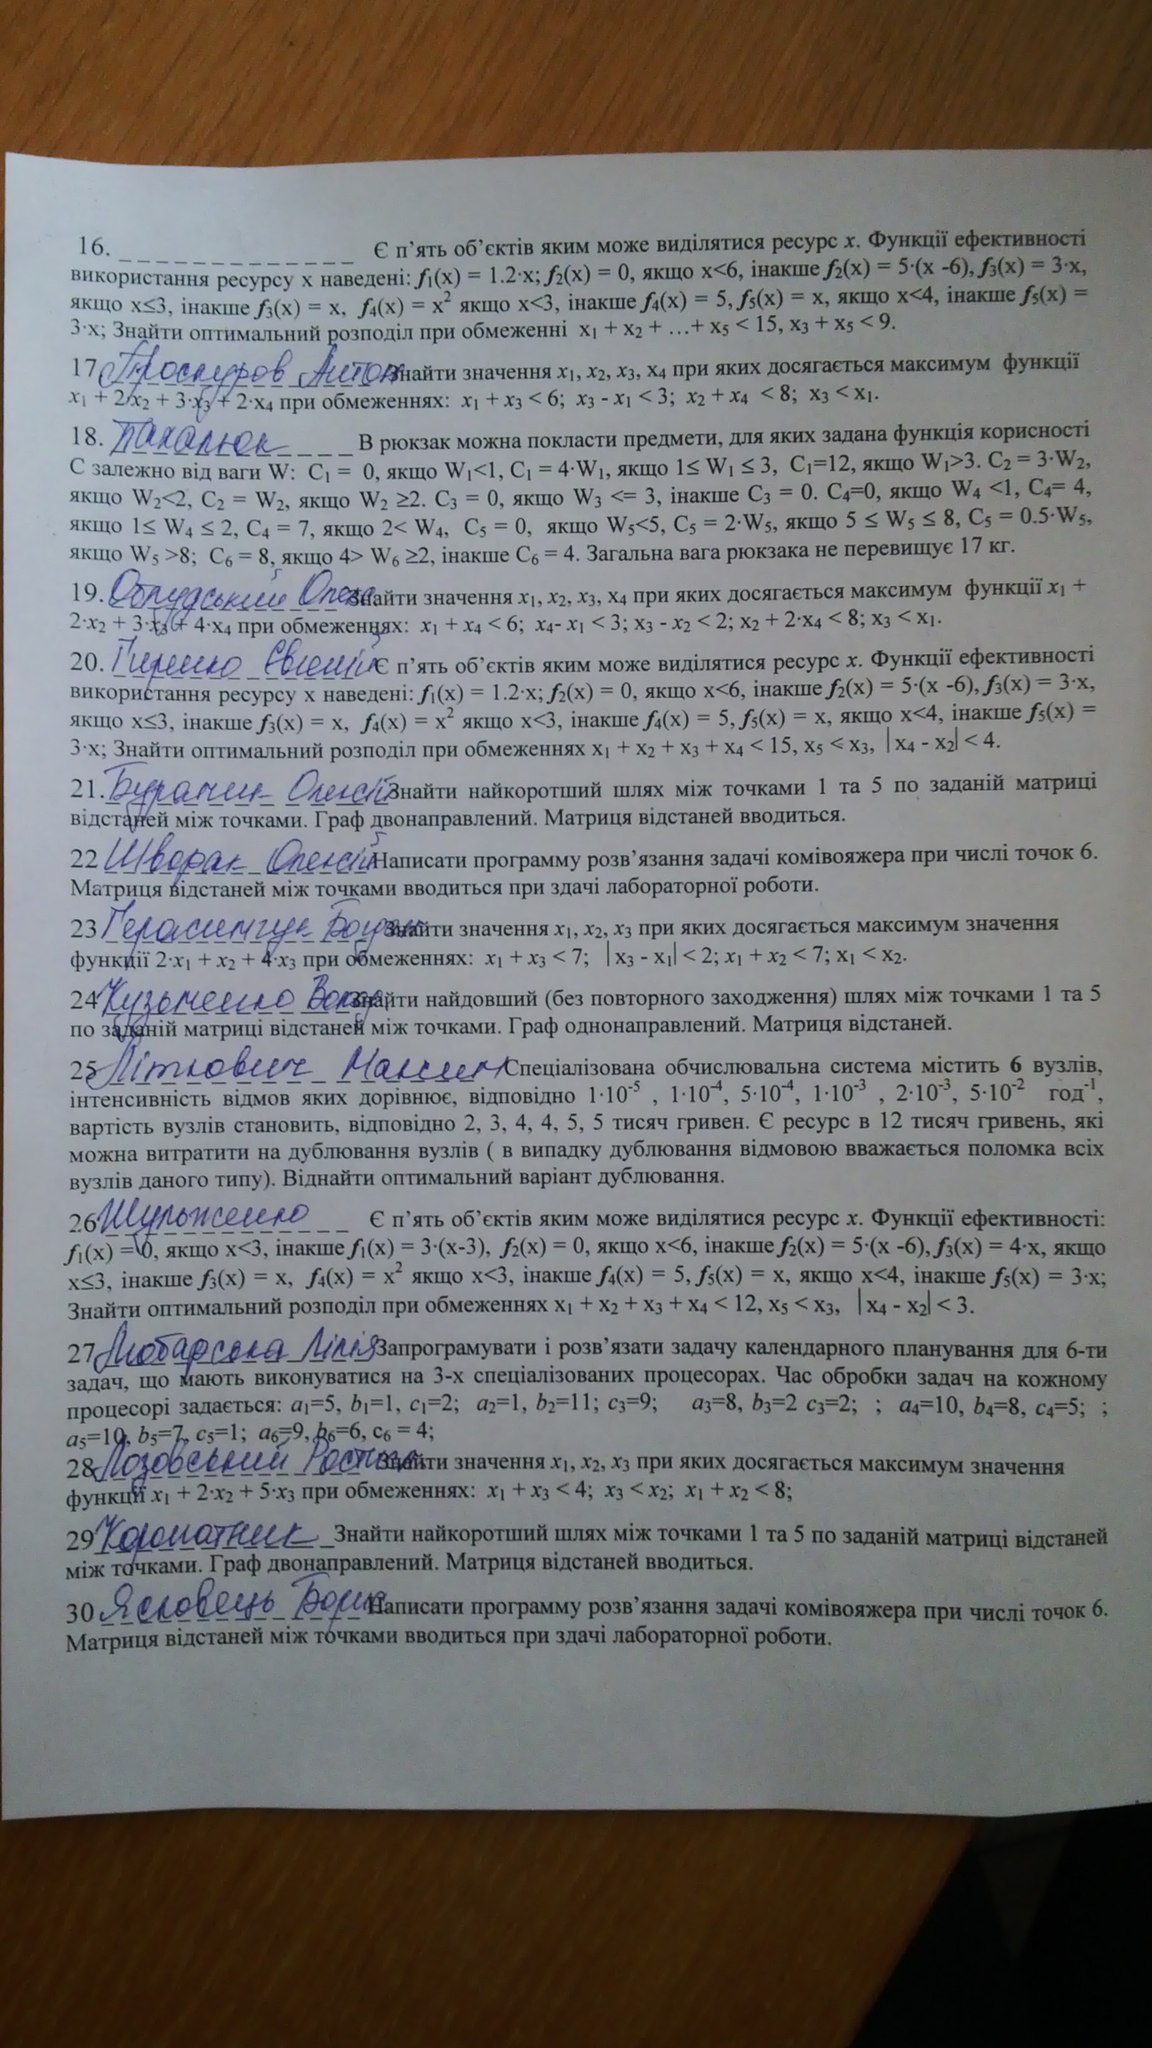 16. _ _ _ _ _ _ _ _ _ _ _ _ _ _ Є п’ять об’єктів яким може виділятися ресурс x. Функції ефективності
використання ресурсу x наведені: f₁(x) = 1.2·x; f₂(x) = 0, якщо x<6, інакше f₂(x) = 5·(x -6), f₃(x) = 3·x,
якщо x≤3, інакше f₃(x) = x, f₄(x) = x² якщо x<3, інакше f₄(x) = 5, f₅(x) = x, якщо x<4, інакше f₅(x) =
3·x; Знайти оптимальний розподіл при обмеженні x₁ + x₂ + …+ x₅ < 15, x₃ + x₅ < 9.
17. Проскуров Антон Знайти значення x₁, x₂, x₃, x₄ при яких досягається максимум функції
x₁ + 2·x₂ + 3·x₃ + 2·x₄ при обмеженнях: x₁ + x₃ < 6; x₃ - x₁ < 3; x₂ + x₄ < 8; x₃ < x₁.
18. Пахалюк В рюкзак можна покласти предмети, для яких задана функція корисності
C залежно від ваги W: C₁ = 0, якщо W₁<1, C₁ = 4·W₁, якщо 1≤ W₁ ≤ 3, C₁=12, якщо W₁>3. C₂ = 3·W₂,
якщо W₂<2, C₂ = W₂, якщо W₂ ≥2. C₃ = 0, якщо W₃ <= 3, інакше C₃ = 0. C₄=0, якщо W₄ <1, C₄= 4,
якщо 1≤ W₄ ≤ 2, C₄ = 7, якщо 2< W₄, C₅ = 0, якщо W₅<5, C₅ = 2·W₅, якщо 5 ≤ W₅ ≤ 8, C₅ = 0.5·W₅,
якщо W₅ >8; C₆ = 8, якщо 4> W₆ ≥2, інакше C₆ = 4. Загальна вага рюкзака не перевищує 17 кг.
19. Знайти значення x₁, x₂, x₃, x₄ при яких досягається максимум функції x₁ +
2·x₂ + 3·x₃ + 4·x₄ при обмеженнях: x₁ + x₄ < 6; x₄- x₁ < 3; x₃ - x₂ < 2; x₂ + 2·x₄ < 8; x₃ < x₁.
20. Євгеній Є п’ять об’єктів яким може виділятися ресурс x. Функції ефективності
використання ресурсу x наведені: f₁(x) = 1.2·x; f₂(x) = 0, якщо x<6, інакше f₂(x) = 5·(x -6), f₃(x) = 3·x,
якщо x≤3, інакше f₃(x) = x, f₄(x) = x² якщо x<3, інакше f₄(x) = 5, f₅(x) = x, якщо x<4, інакше f₅(x) =
3·x; Знайти оптимальний розподіл при обмеженнях x₁ + x₂ + x₃ + x₄ < 15, x₅ < x₃, |x₄ - x₂| < 4.
21. Олексій Знайти найкоротший шлях між точками 1 та 5 по заданій матриці
відстаней між точками. Граф двонаправлений. Матриця відстаней вводиться.
22 Шворак Олексій Написати программу розв’язання задачі комівояжера при числі точок 6.
Матриця відстаней між точками вводиться при здачі лабораторної роботи.
23 Герасимчук Богдан Знайти значення x₁, x₂, x₃ при яких досягається максимум значення
функції 2·x₁ + x₂ + 4·x₃ при обмеженнях: x₁ + x₃ < 7; |x₃ - x₁| < 2; x₁ + x₂ < 7; x₁ < x₂.
24 Кузьменко Знайти найдовший (без повторного заходження) шлях між точками 1 та 5
по заданій матриці відстаней між точками. Граф однонаправлений. Матриця відстаней.
25 Літкович Максим Спеціалізована обчислювальна система містить 6 вузлів,
інтенсивність відмов яких дорівнює, відповідно 1·10⁻⁵ , 1·10⁻⁴, 5·10⁻⁴, 1·10⁻³ , 2·10⁻³, 5·10⁻² год⁻¹,
вартість вузлів становить, відповідно 2, 3, 4, 4, 5, 5 тисяч гривен. Є ресурс в 12 тисяч гривень, які
можна витратити на дублювання вузлів ( в випадку дублювання відмовою вважається поломка всіх
вузлів даного типу). Віднайти оптимальний варіант дублювання.
26 Шульженко Є п’ять об’єктів яким може виділятися ресурс x. Функції ефективності:
f₁(x) = 0, якщо x<3, інакше f₁(x) = 3·(x-3), f₂(x) = 0, якщо x<6, інакше f₂(x) = 5·(x -6), f₃(x) = 4·x, якщо
x≤3, інакше f₃(x) = x, f₄(x) = x² якщо x<3, інакше f₄(x) = 5, f₅(x) = x, якщо x<4, інакше f₅(x) = 3·x;
Знайти оптимальний розподіл при обмеженнях x₁ + x₂ + x₃ + x₄ < 12, x₅ < x₃, |x₄ - x₂| < 3.
27 Любарська Лілія Запрограмувати і розв’язати задачу календарного планування для 6-ти
задач, що мають виконуватися на 3-х спеціалізованих процесорах. Час обробки задач на кожному
процесорі задається: a₁=5, b₁=1, c₁=2; a₂=1, b₂=11; c₃=9; a₃=8, b₃=2 c₃=2; ; a₄=10, b₄=8, c₄=5; ;
a₅=10, b₅=7, c₅=1; a₆=9, b₆=6, c₆ = 4;
28 Лозовський Знайти значення x₁, x₂, x₃ при яких досягається максимум значення
функції x₁ + 2·x₂ + 5·x₃ при обмеженнях: x₁ + x₃ < 4; x₃ < x₂; x₁ + x₂ < 8;
29 Знайти найкоротший шлях між точками 1 та 5 по заданій матриці відстаней
між точками. Граф двонаправлений. Матриця відстаней вводиться.
30 Ясковець Написати программу розв’язання задачі комівояжера при числі точок 6.
Матриця відстаней між точками вводиться при здачі лабораторної роботи.